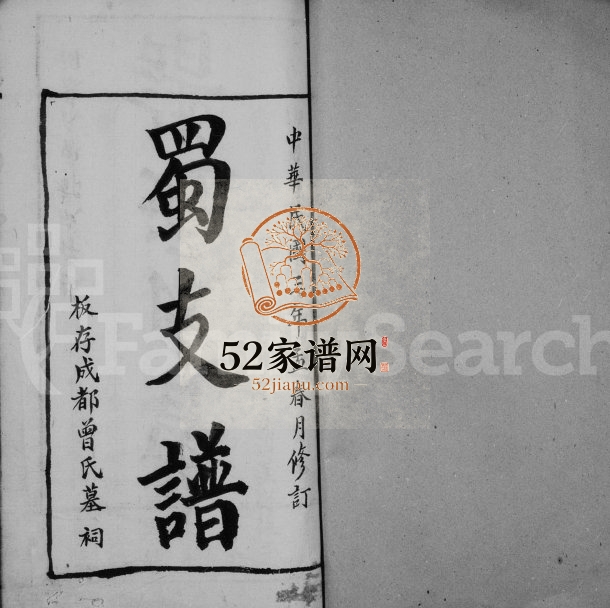 中華民國三年
春月修訂
蜀支譜
板存成都曾氏墓祠
52家谱网
52jiapu.com
FamilySearch